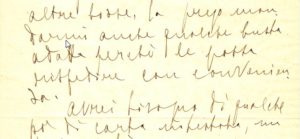 altre borse. La prego man
darmi anche qualche busta
adatta perchè le possa
rispedire con convenien
za.
Avrei bisogno di qualche
po' di carta intestata, un